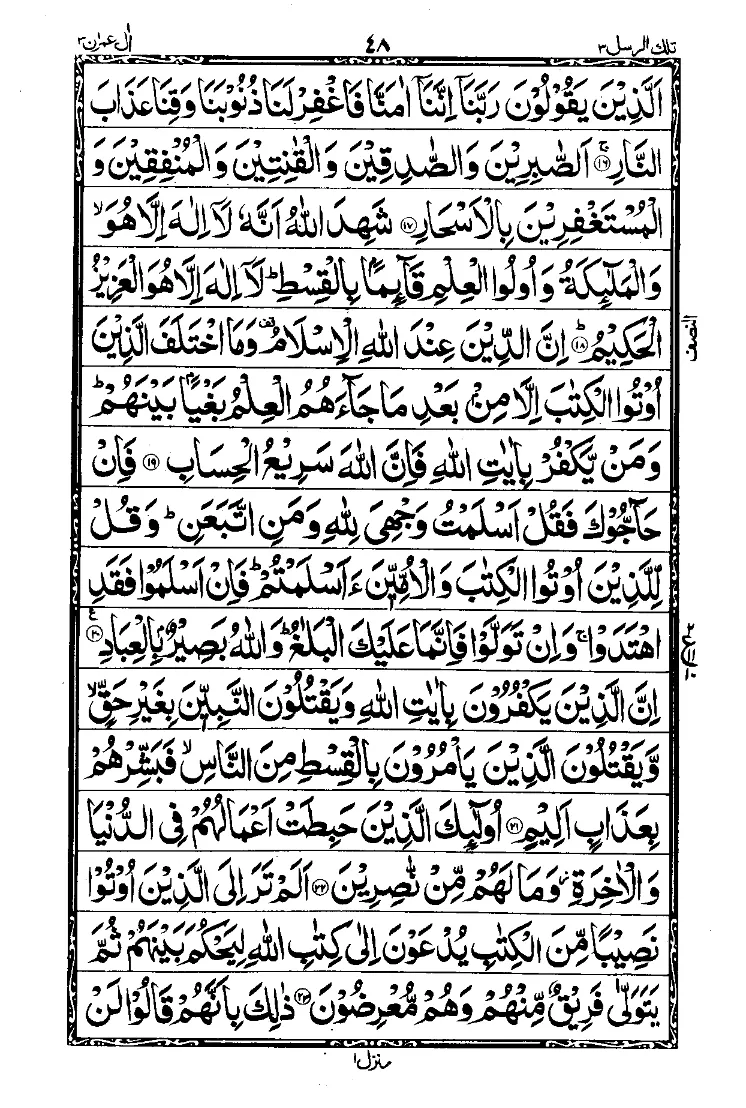 تلك الرسل ٣ ٤٨ اٰل عمرٰن ٣
اَلَّذِيۡنَ يَقُوۡلُوۡنَ رَبَّنَاۤ اِنَّنَاۤ اٰمَنَّا فَاغۡفِرۡ لَنَا ذُنُوۡبَنَا وَقِنَا عَذَابَ
النَّارِ ۚ‏﴿۱۶﴾ اَلصّٰبِرِيۡنَ وَالصّٰدِقِيۡنَ وَالۡقٰنِتِيۡنَ وَالۡمُنۡفِقِيۡنَ وَ
الۡمُسۡتَغۡفِرِيۡنَ بِالۡاَسۡحَارِ ﴿۱۷﴾ شَهِدَ اللّٰهُ اَنَّهٗ لَاۤ اِلٰهَ اِلَّا هُوَ ۙ
وَالۡمَلٰٓٮِٕكَةُ وَاُولُوا الۡعِلۡمِ قَآٮِٕمًاۢ بِالۡقِسۡطِ ؕ لَاۤ اِلٰهَ اِلَّا هُوَ الۡعَزِيۡزُ
الۡحَكِيۡمُ ؕ ﴿۱۸﴾ اِنَّ الدِّيۡنَ عِنۡدَ اللّٰهِ الۡاِسۡلَامُ ۟ وَمَا اخۡتَلَفَ الَّذِيۡنَ
النصف
اُوۡتُوا الۡكِتٰبَ اِلَّا مِنۡۢ بَعۡدِ مَا جَآءَهُمُ الۡعِلۡمُ بَغۡيًاۢ بَيۡنَهُمۡ ؕ
وَمَنۡ يَّكۡفُرۡ بِاٰيٰتِ اللّٰهِ فَاِنَّ اللّٰهَ سَرِيۡعُ الۡحِسَابِ ﴿۱۹﴾ فَاِنۡ
حَآجُّوۡكَ فَقُلۡ اَسۡلَمۡتُ وَجۡهِىَ لِلّٰهِ وَمَنِ اتَّبَعَنِ ؕ وَقُلْ
لِّلَّذِيۡنَ اُوۡتُوا الۡكِتٰبَ وَالۡاُمِّيّٖنَ ءَاَسۡلَمۡتُمۡ ؕ فَاِنۡ اَسۡلَمُوۡا فَقَدِ
اهۡتَدَوْا ۚ وَاِنۡ تَوَلَّوۡا فَاِنَّمَا عَلَيۡكَ الۡبَلٰغُ ؕ وَاللّٰهُ بَصِيۡرٌۢ بِالۡعِبَادِ ﴿۲۰﴾ ع
اِنَّ الَّذِيۡنَ يَكۡفُرُوۡنَ بِاٰيٰتِ اللّٰهِ وَيَقۡتُلُوۡنَ النَّبِيّٖنَ بِغَيۡرِ حَقٍّ ۙ
وَّيَقۡتُلُوۡنَ الَّذِيۡنَ يَاۡمُرُوۡنَ بِالۡقِسۡطِ مِنَ النَّاسِ ۙ فَبَشِّرۡهُمۡ
بِعَذَابٍ اَلِيۡمٍ ﴿۲۱﴾ اُولٰٓٮِٕكَ الَّذِيۡنَ حَبِطَتۡ اَعۡمَالُهُمۡ فِى الدُّنۡيَا
وَالۡاٰخِرَةِ ۫ وَمَا لَهُمۡ مِّنۡ نّٰصِرِيۡنَ ﴿۲۲﴾ اَلَمۡ تَرَ اِلَى الَّذِيۡنَ اُوۡتُوۡا
نَصِيۡبًا مِّنَ الۡكِتٰبِ يُدۡعَوۡنَ اِلٰى كِتٰبِ اللّٰهِ لِيَحۡكُمَ بَيۡنَهُمۡ ثُمَّ
يَتَوَلّٰى فَرِيۡقٌ مِّنۡهُمۡ وَهُمۡ مُّعۡرِضُوۡنَ ﴿۲۳﴾ ذٰلِكَ بِاَنَّهُمۡ قَالُوۡا لَنۡ
منزل ۱